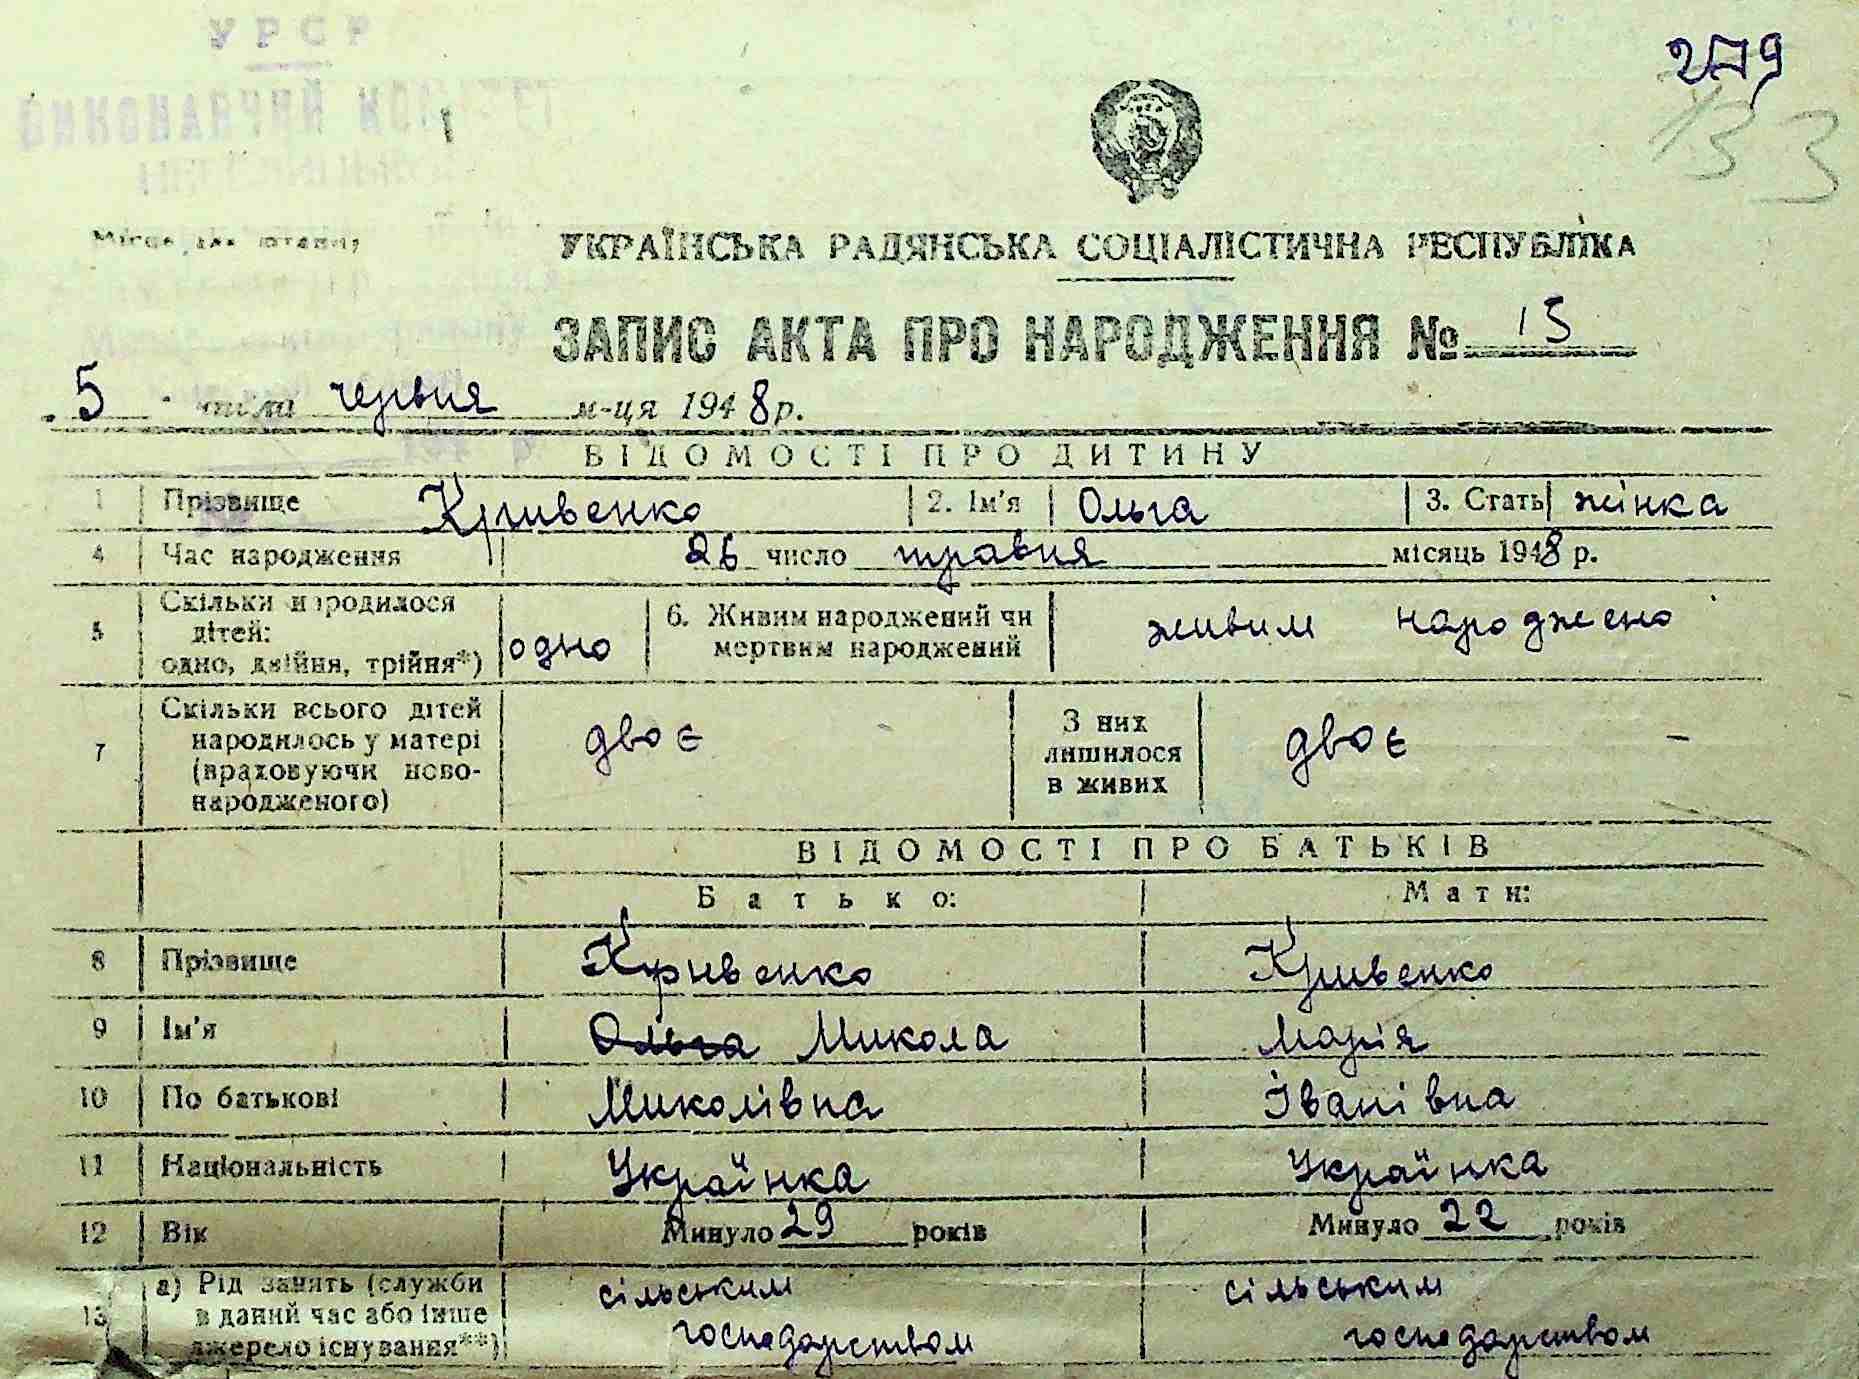 УРСР
279
ВИКОНАВЧИЙ КОМІТЕТ
133
УКРАЇНСЬКА РАДЯНСЬКА СОЦІАЛІСТИЧНА РЕСПУБЛІКА
ЗАПИС АКТА ПРО НАРОДЖЕННЯ № 15
5 числа червня м-ця 1948 р.
ВІДОМОСТІ ПРО ДИТИНУ
1 Прізвище Кривенко 2. Ім'я Ольга 3. Стать жінка
4 Час народження 26 число травня місяць 1948 р.
5 Скільки народилося дітей: одно, двійня, трійня*) одно 6. Живим народжений чи мертвим народжений живим народжено
7 Скільки всього дітей народилось у матері (враховуючи новонародженого) двоє З них лишилося в живих двоє –
ВІДОМОСТІ ПРО БАТЬКІВ
Батько: Мати:
8 Прізвище Кривенко Кривенко
9 Ім'я Ольга Микола Марія
10 По батькові Миколівна Іванівна
11 Національність Українка Українка
12 Вік Минуло 29 років Минуло 22 років
13 а) Рід занять (служби в даний час або інше джерело існування**) сільським господарством сільським господарством